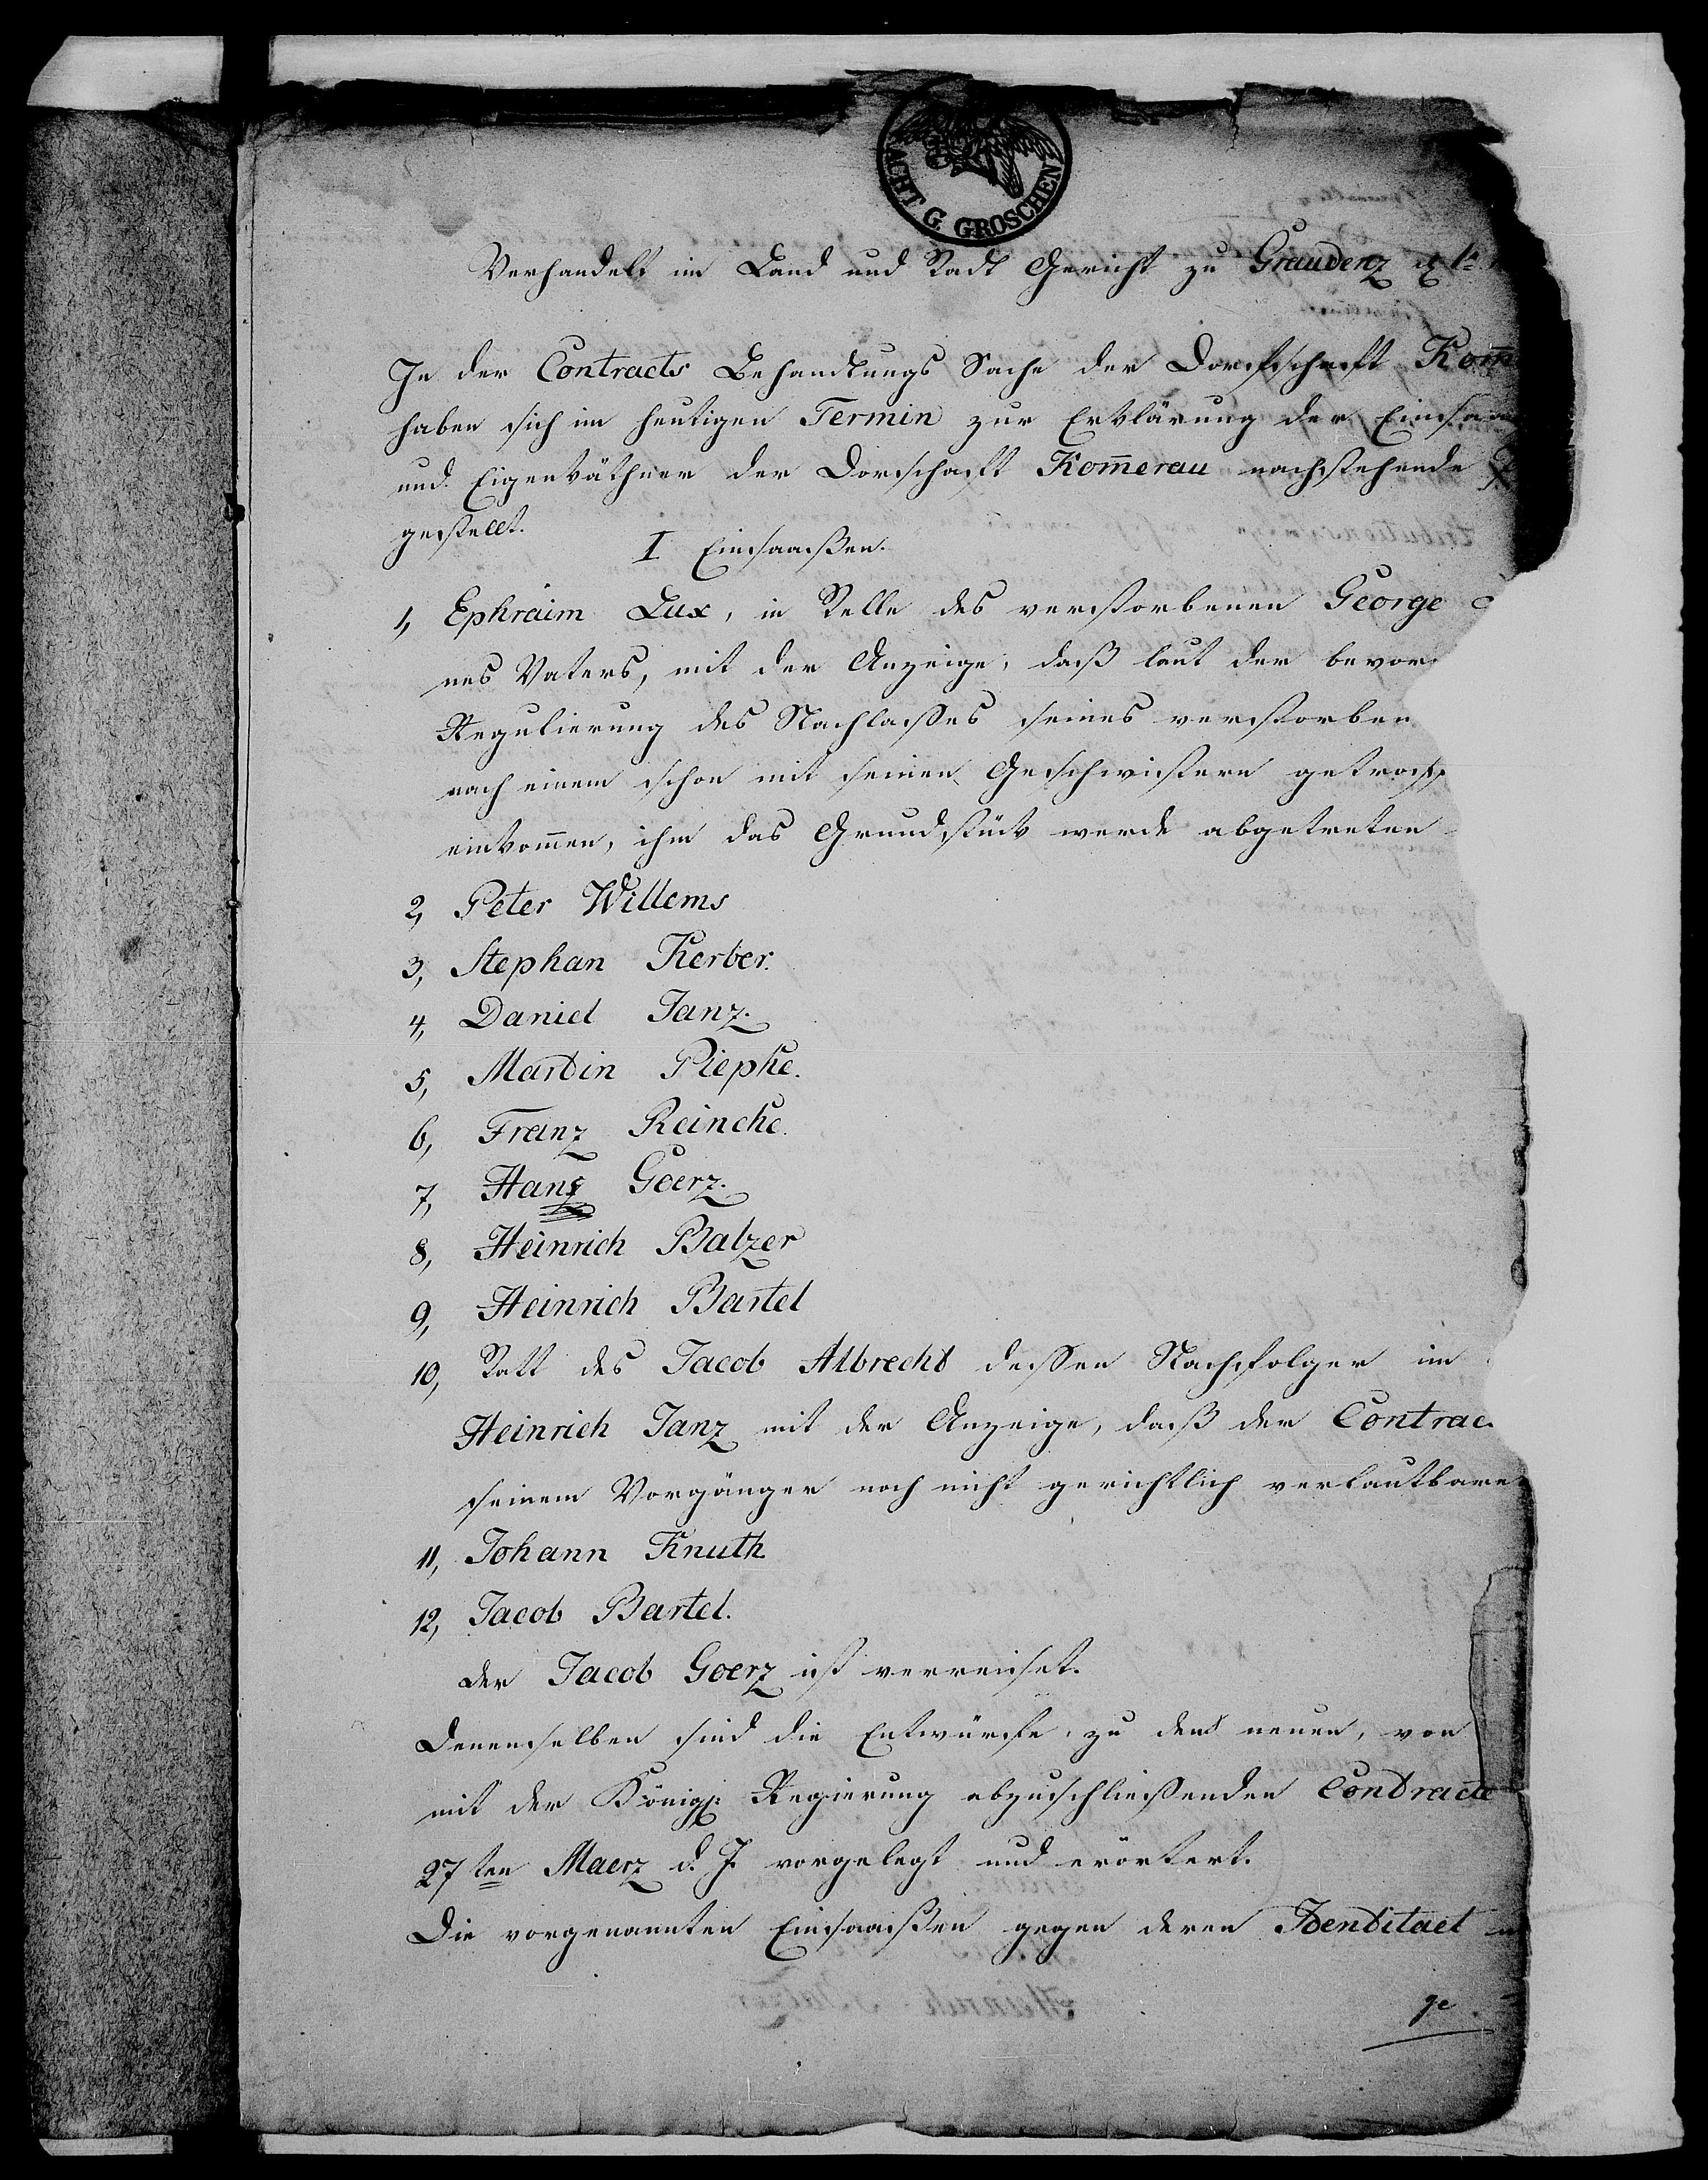 ACHT G. GROSCHEN
Verhandelt im Land und Stadt Gericht zu Graudenz d 1t
In der Contracts Behandlungs Sache der Dorfschaft Kom̄
haben sich im heutigen Termin zur Erklärung der Einsaa
und Eigenkäthner der Dorfschaft Kom̄erau nachstehende
gestellt.
I Einsaaßen.
1, Ephraim Lux, in Stelle des verstorbenen George
nes Vaters, mit der Anzeige, daß laut der bevor
Regulierung des Nachlaßes seines verstorben
nach einem schon mit seinen Geschwistern getroff
einkom̄en, ihm das Grundstück werde abgetreten
2, Peter Willems
3, Stephan Kerber.
4, Daniel Janz.
5, Martin Piepke.
6, Franz Reincke.
7, Hans Goerz.
8, Heinrich Balzer
9, Heinrich Bartel
10, Statt des Jacob Albrecht dessen Nachfolger im
Heinrich Janz mit der Anzeige, daß der Contrac
seinem Vorgänger noch nicht gerichtlich verlautbare
11, Johann Knuth
12, Jacob Bartel.
der Jacob Goerz ist verreiset.
Denenselben sind die Entwürfe, zu den neuen, von
mit der Königl: Regierung abzuschließenden Contracte
27sten Maerz d. J. vorgelegt und erörtert.
Die vorgenannten Einsaaßen gegen deren Identitaet
ge